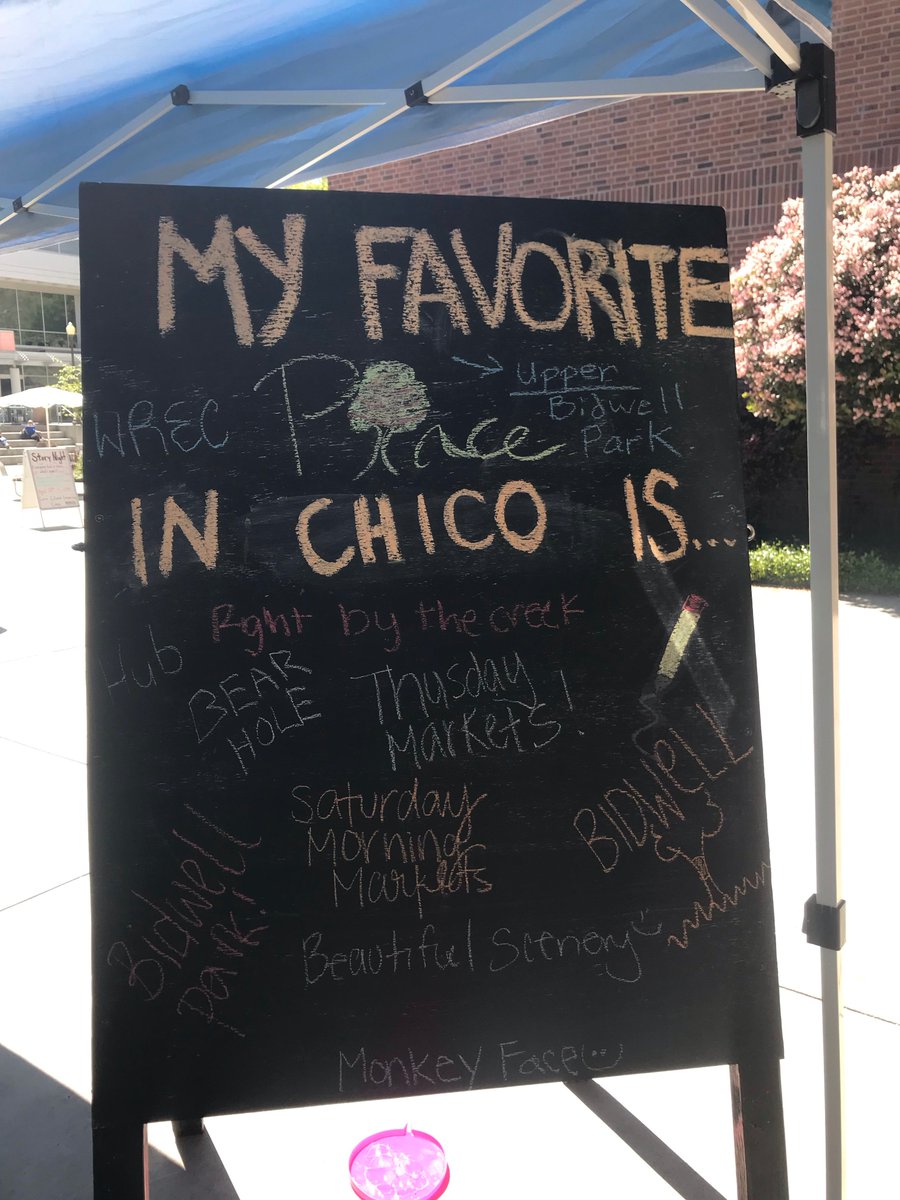 MY FAVORITE
WREC
Place
Upper
Bidwell
Park
IN CHICO IS...
Right by the creek
Hub
BEAR
HOLE
Thusday
Markets!
BIDWELL
Saturday
Morning
Markets
Bidwell
Park!
Beautiful Scenery
Monkey Face
Story Night